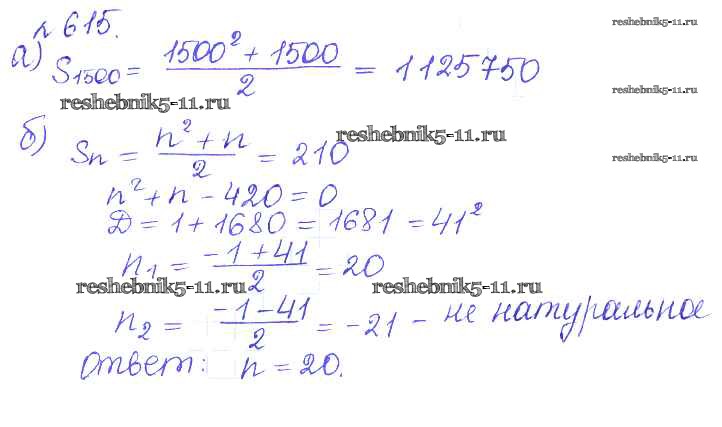 № 615.
reshebnik5-11.ru
а) S1500 = (1500² + 1500)/2 = 1125750
reshebnik5-11.ru
reshebnik5-11.ru
б) Sn = (n² + n)/2 = 210
reshebnik5-11.ru
reshebnik5-11.ru
n² + n - 420 = 0
D = 1 + 1680 = 1681 = 41²
n1 = (-1 + 41)/2 = 20
reshebnik5-11.ru
reshebnik5-11.ru
n2 = (-1 - 41)/2 = -21 - не натуральное
Ответ: n = 20.